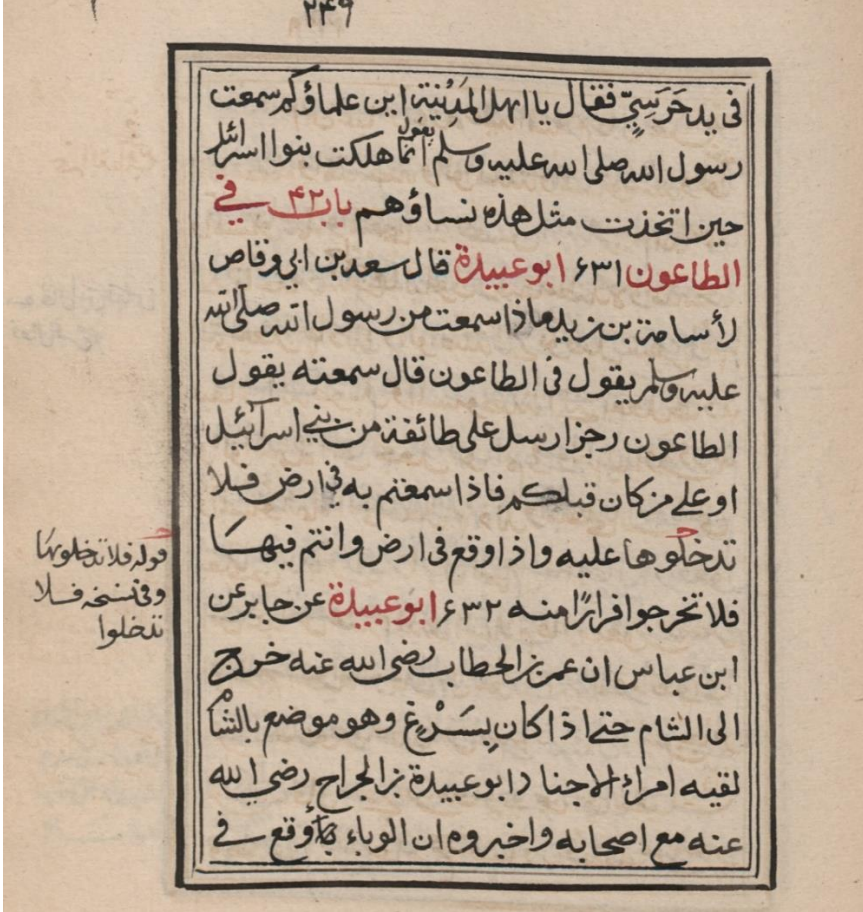 ٢٤٩
في يد حَرَسِيّ فقال يا اهل المَدِيْنة اين علماؤكم سمعت
رسول الله صلى الله عليه وسلم يقول انما هلكت بنوا اسرائل
حين اتخذت مثل هذه نساؤهم باب ٤٢ في
الطاعون ٦٣١ ابو عبيدة قال سعد بن ابي وقاص
لأسامة بن زيد ماذا سمعت من رسول الله صلى الله
عليه وسلم يقول في الطاعون قال سمعته يقول
الطاعون رجز ارسل على طائفة من بني اسرآئيل
او على من كان قبلكم فاذا سمعتم به في ارض فلا
تدخلوها عليه واذا وقع في ارض وانتم فيها
فلا تخرجوا فرارًا منه ٦٣٢ ابو عبيدة عن جابر عن
ابن عباس ان عمر بن الخطاب رضي الله عنه خرج
الى الشام حتى اذا كان بِسَرْغ وهو موضع بالشام
لقيه امراء الاجناد ابو عبيدة بن الجراح رضي الله
عنه مع اصحابه واخبروه ان الوباء وقع في
قوله فلا تدخلوها
وفي نسخه فلا
تدخلوا